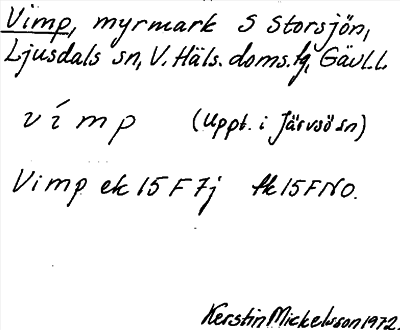 Vimp, myrmark S Storsjön,
Ljusdals sn, V. Häls. doms. tg, Gävl. l.
vímp (Uppt. i Järvsö sn)
Vimp ek 15 F 7j fk 15 F NO.
Kerstin Mickelsson 1972.